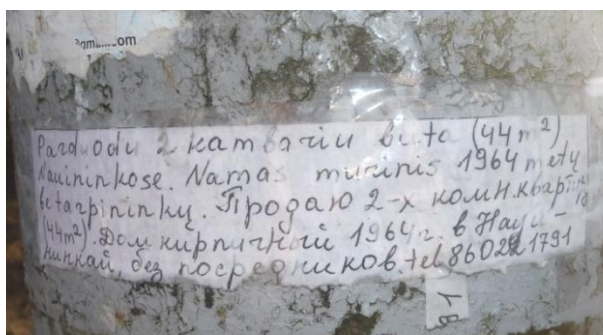 Parduodu 2 kambariu buta (44 m²)
Naujininkose. Namas murinis 1964 metų
be tarpininkų. Продаю 2-х комн. квартиру
(44m²). Дом кирпичный 1964 г. в Науи-
нинкай, без посредников. tel.